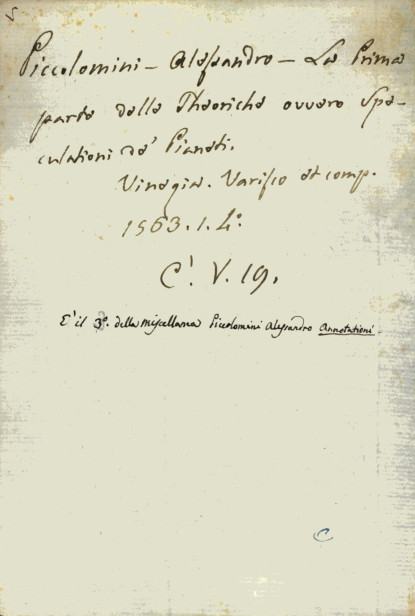 Piccolomini - Alessandro - La Prima
parte delle Theoriche ovvero Spe-
culationi de' Pianeti.
Vinegia. Varisco et comp.
1563. 1. 4.º
C'. V. 19.
E' il 3.º della miscellanea Piccolomini Alessandro Annotationi.
C